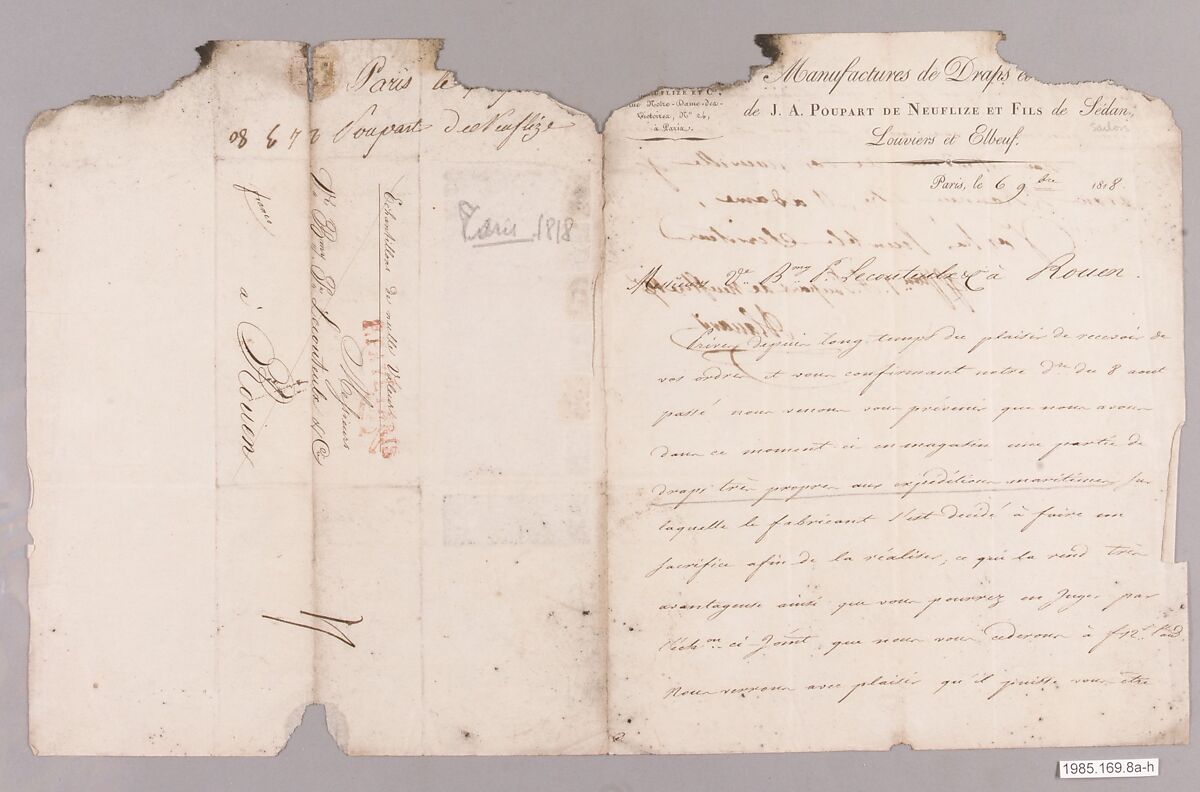 Paris le
Poupart de Neuflize
Echantillons de nulles Valeurs
Messieurs
Vve Bmy Pre Lecouteulx & Cie
à Rouen
france
Paris 1818
NEUFLIZE ET Cie,
rue Notre-Dame-des-
Victoires, No 24,
à Paris.
Manufactures de Draps
de J. A. POUPART DE NEUFLIZE ET FILS de Sédan,
Louviers et Elbeuf.
Sedan
Paris, le 6 9bre 1818.
Messieurs Vve Bmy Pre Lecouteulx & Cie à Rouen.
Privés depuis long-temps du plaisir de recevoir de
vos ordres et vous confirmant notre Dre du 8 aout
passé nous venons vous prévenir que nous avons
dans ce moment-ci en magasin une partie de
draps très propres aux expéditions maritimes, sur
laquelle le fabricant s'est décidé à faire un
sacrifice afin de la réaliser, ce qui la rend très
avantageuse ainsi que vous pourrez en juger par
l'échon ci-joint, que nous vous céderons à f 12
Nous verrons avec plaisir qu'il puisse vous être
1985.169.8a-h